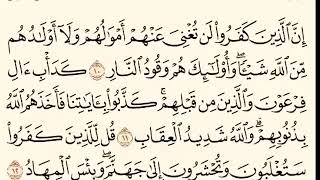 إِنَّ ٱلَّذِينَ كَفَرُوا۟ لَن تُغْنِىَ عَنْهُمْ أَمْوَٰلُهُمْ وَلَآ أَوْلَٰدُهُم
مِّنَ ٱللَّهِ شَيْـًٔا ۖ وَأُو۟لَٰٓئِكَ هُمْ وَقُودُ ٱلنَّارِ ١٠ كَدَأْبِ ءَالِ
فِرْعَوْنَ وَٱلَّذِينَ مِن قَبْلِهِمْ ۚ كَذَّبُوا۟ بِـَٔايَٰتِنَا فَأَخَذَهُمُ ٱللَّهُ
بِذُنُوبِهِمْ ۗ وَٱللَّهُ شَدِيدُ ٱلْعِقَابِ ١١ قُل لِّلَّذِينَ كَفَرُوا۟
سَتُغْلَبُونَ وَتُحْشَرُونَ إِلَىٰ جَهَنَّمَ ۚ وَبِئْسَ ٱلْمِهَادُ ١٢